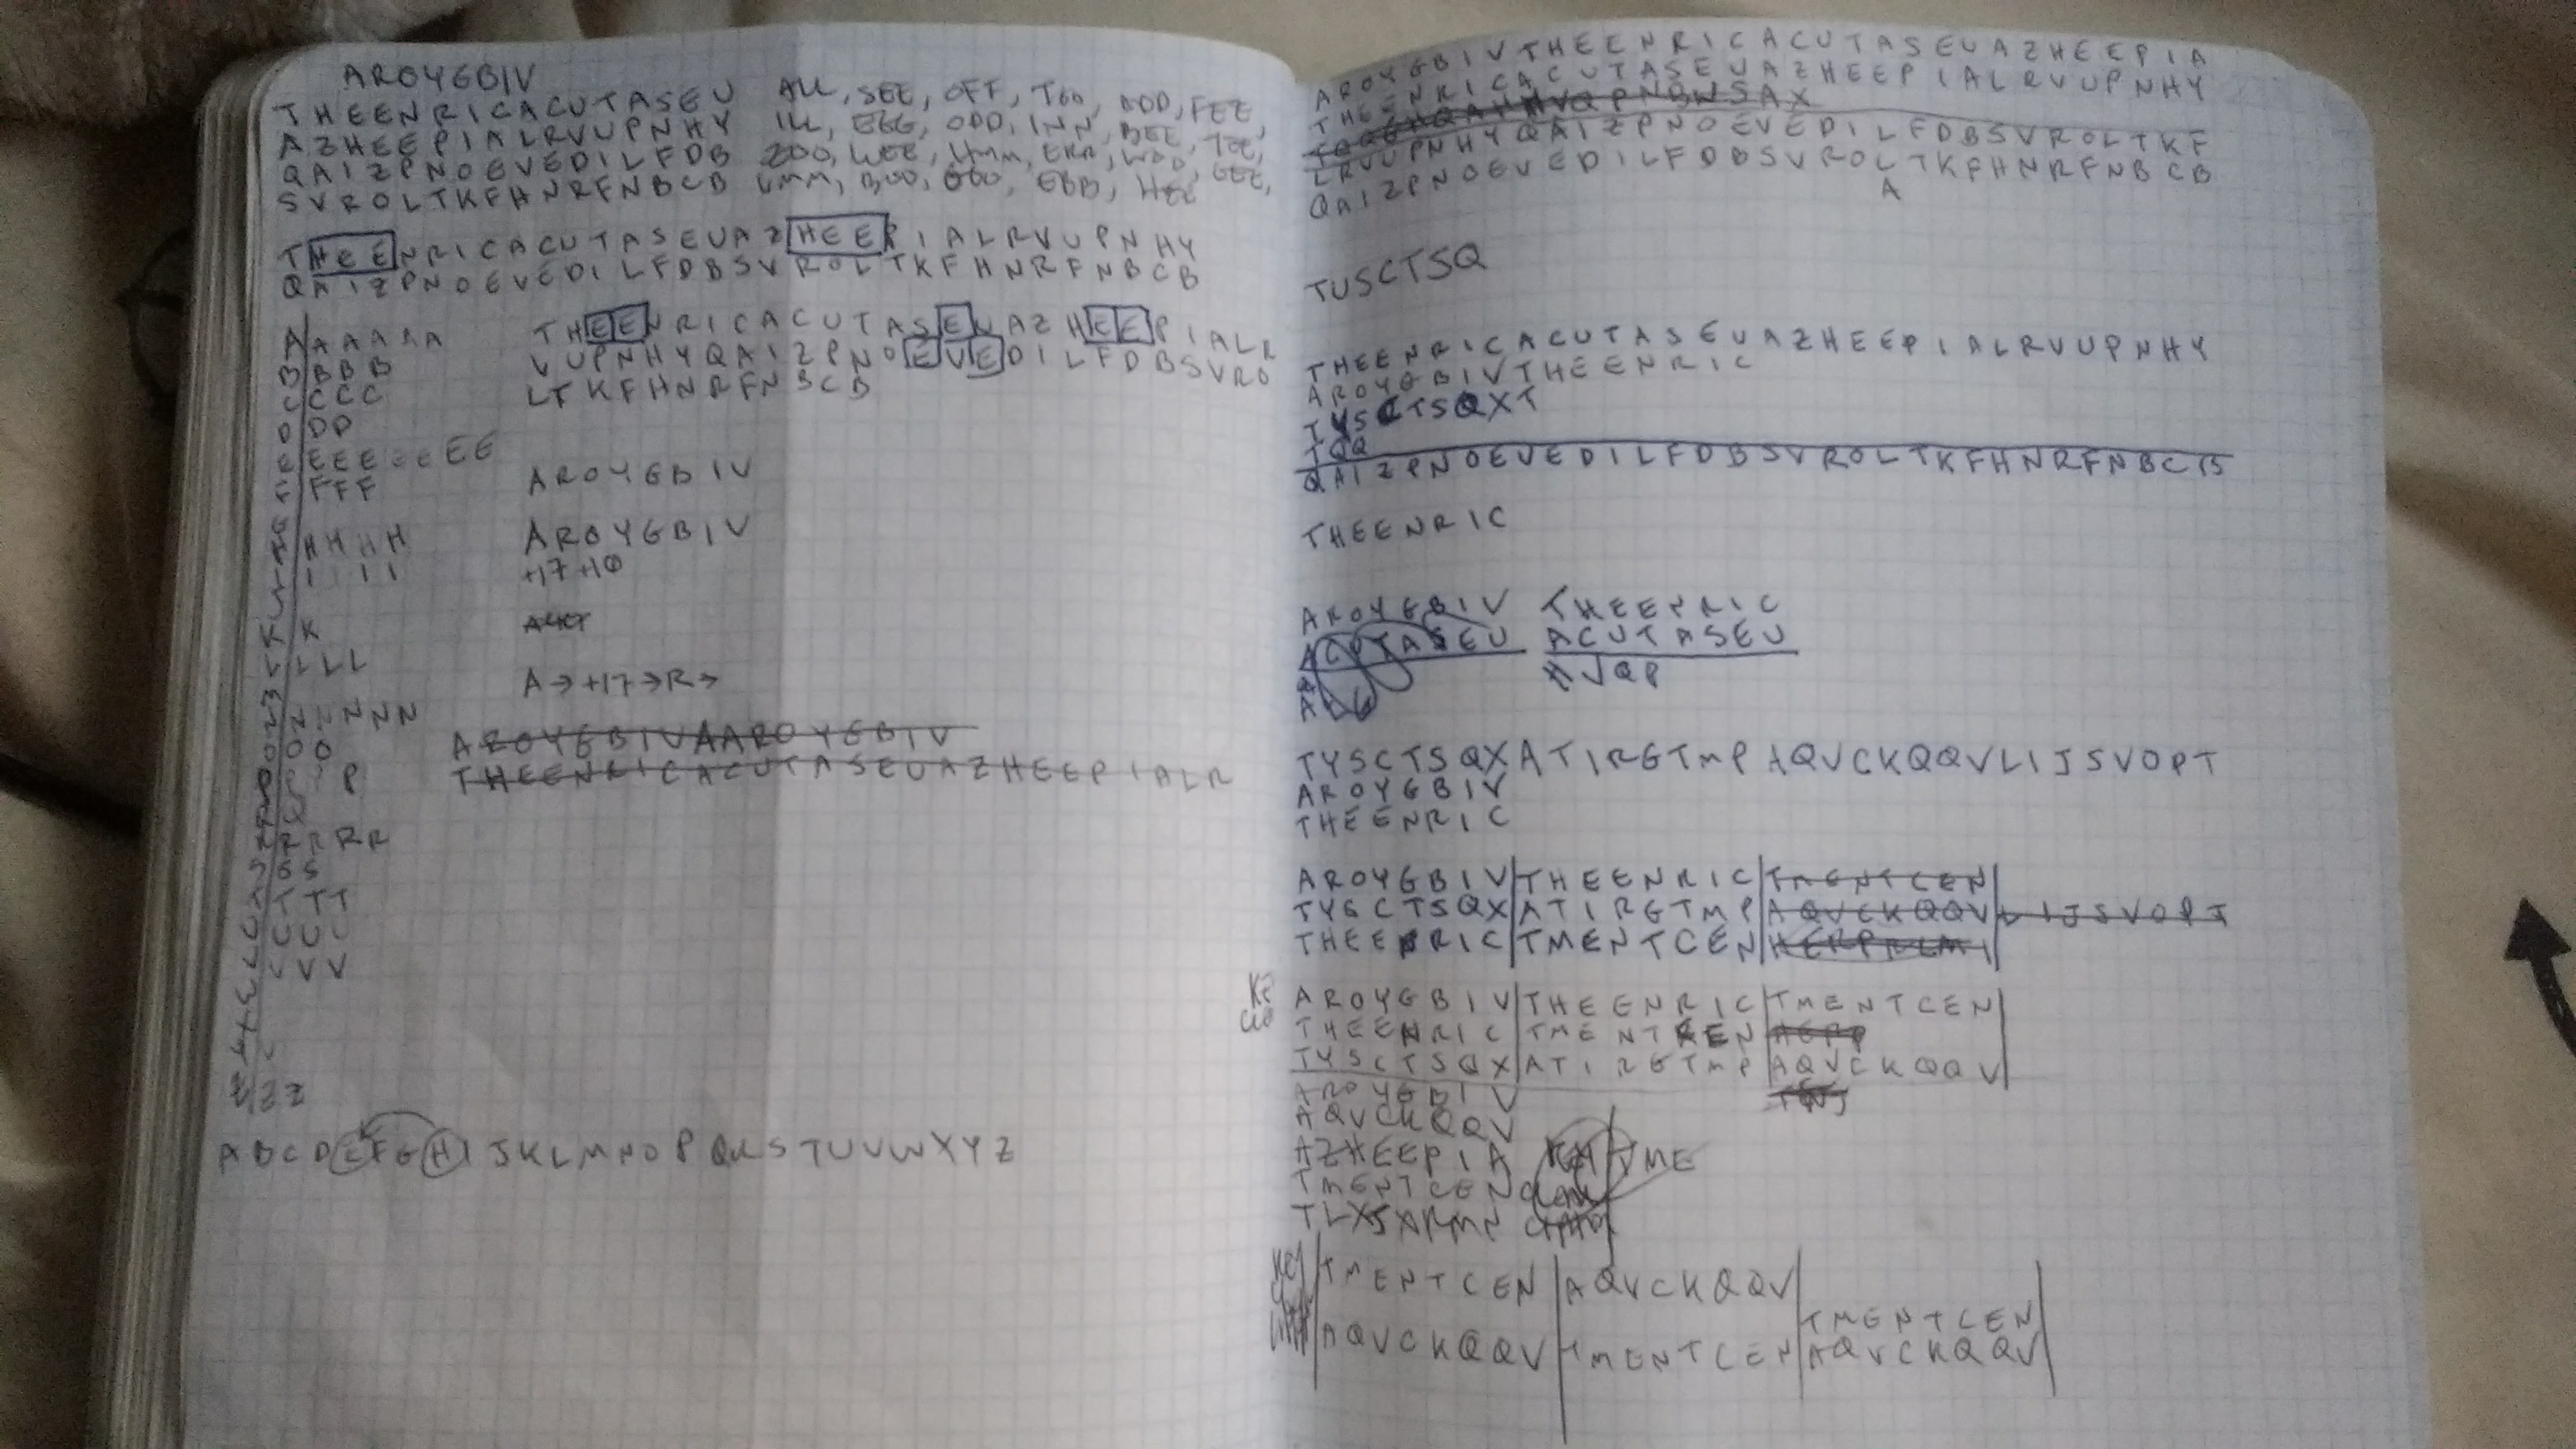 AROYGBIV
THEENRICACUTASEU ALL, SEE, OFF, TOO, ODD, FEE,
AZHEEPIALRVUPNHY ILL, EGG, ODD, INN, BEE, TEE,
QAIZPNOEVEDILFDB ZOO, WEE, UMM, ERR, WOO, GEE,
SVROLTKFHNRFNBCB UMM, BOO, GOO, EBB, HEE
THEENRICACUTASEUAZHEEPIALRVUPNHY
QAIZPNOEVEDILFDBSVROLTKFHNRFNBCB
A AAAAA
B BBB
C CCC
D DD
E EEEEEEE
F FFF
G
H HHHH
I III
J
K K
L LLL
M
N NNNNN
O OO
P PPP
Q Q
R RRRR
S SS
T TTT
U UUU
V VV
Z ZZ
THEENRICACUTASEUAZHEEPIALR
VUPNHYQAIZPNOEVEDILFDBSVRO
LTKFHNRFNBCB
AROYGBIV
AROYGBIV
+17+10
A→+17→R→
AROYGBIVAAROYGBIV
THEENRICACUTASEUAZHEEPIALR
ABCDEFGHIJKLMNOPQRSTUVWXYZ
AROYGBIVTHEENRICACUTASEUAZHEEPIA
THEENRICACUTASEUAZHEEPIALRVUPNHY
LRVUPNHYQAIZPNOEVEDILFDBSVROLTKF
QAIZPNOEVEDILFDBSVROLTKFHNRFNBCB
A
TUSCTSQ
THEENRICACUTASEUAZHEEPIALRVUPNHY
AROYGBIVTHEENRIC
TYSCTSQXT
TQQ
QAIZPNOEVEDILFDBSVROLTKFHNRFNBCB
THEENRIC
AROYGBIV THEENRIC
ACUTASEU ACUTASEU
JQP
TYSCTSQXATIRGTMPAQVCKQQVLIJSVOPT
AROYGBIV
THEENRIC
AROYGBIV THEENRIC TMENTCEN
TYSCTSQX ATIRGTMP AQVCKQQV LIJSVOPT
THEENRIC TMENTCEN
AROYGBIV THEENRIC TMENTCEN
THEENRIC TMENTCEN
TYSCTSQX ATIRGTMP AQVCKQQV
AROYGBIV
AQVCKQQV
AZHEEPIA KEY TME
TMENTCEN
TLXJXRMN
KEY TMENTCEN AQVCKQQV
TMENTCEN
AQVCKQQV TMENTCEN AQVCKQQV